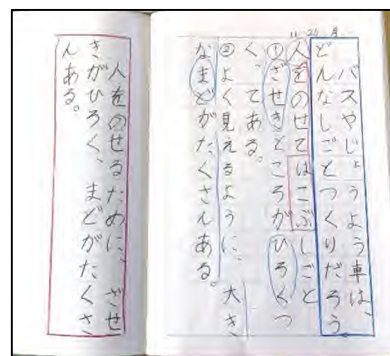 11/26 月
バスやじょうよう車は、
どんなしごとつくりだろう
人をのせてはこぶしごと
①ざせきところがひろくつ
く、てある。
②よく見えるように、大き
なまどがたくさんある。
人をのせるために、ざせ
きがひろく、まどがたくさ
んある。